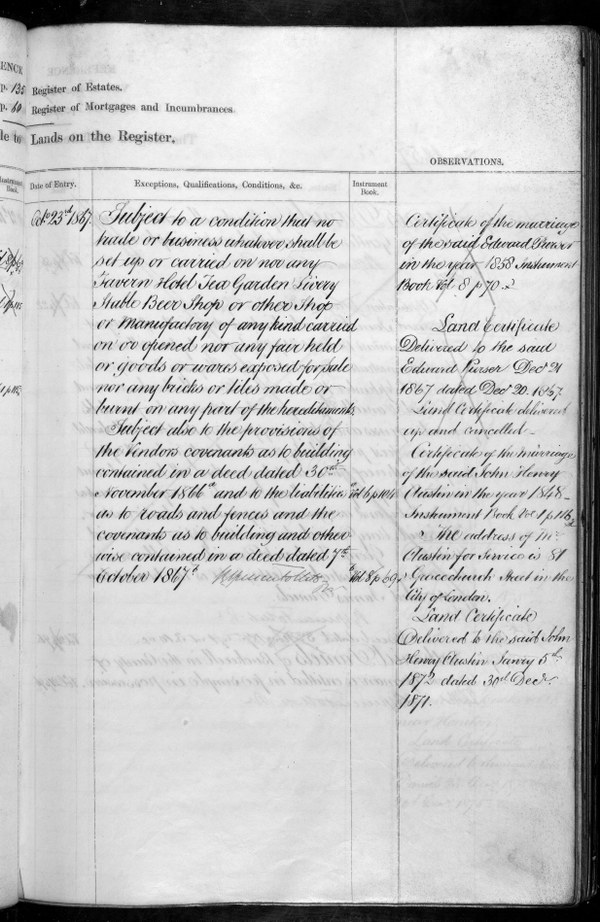 ENCE
p. 135
Register of Estates.
p. 60
Register of Mortgages and Incumbrances.
le to
Lands on the Register,
OBSERVATIONS.
Instrument Book.
Date of Entry.
Exceptions, Qualifications, Conditions, &c.
Instrument Book.
Octr 23rd 1867.
Subject to a condition that no
trade or business whatever shall be
set up or carried on nor any
Tavern Hotel Tea Garden Livery
Stable Beer Shop or other Shop
or Manufactory of any kind carried
on or opened nor any fair held
or goods or wares exposed for sale
nor any bricks or tiles made or
burnt on any part of the hereditaments.
Subject also to the provisions of
the Vendors covenants as to building
contained in a deed dated 30th
November 1866 a and to the liabilities
as to roads and fences and the
covenants as to building and other
wise contained in a deed dated 7th
October 1867 b
a Vol 6 p 104
b Vol 8 p 69
Certificate of the marriage
of the said Edward Purser
in the year 1858 Instrument
Book Vol. 8 p 70
Land Certificate
Delivered to the said
Edward Purser Decr 21
1867 dated Decr 20. 1867.
Land Certificate delivered
up and cancelled
Certificate of the marriage
of the said John Henry
Austin in the year 1848
Instrument Book Vol
The address of Mr
Austin for Service is 81
Gracechurch Street in the
City of London.
Land Certificate
Delivered to the said John
Henry Austin Janry 5th
1872 dated 30th Decr
1871.